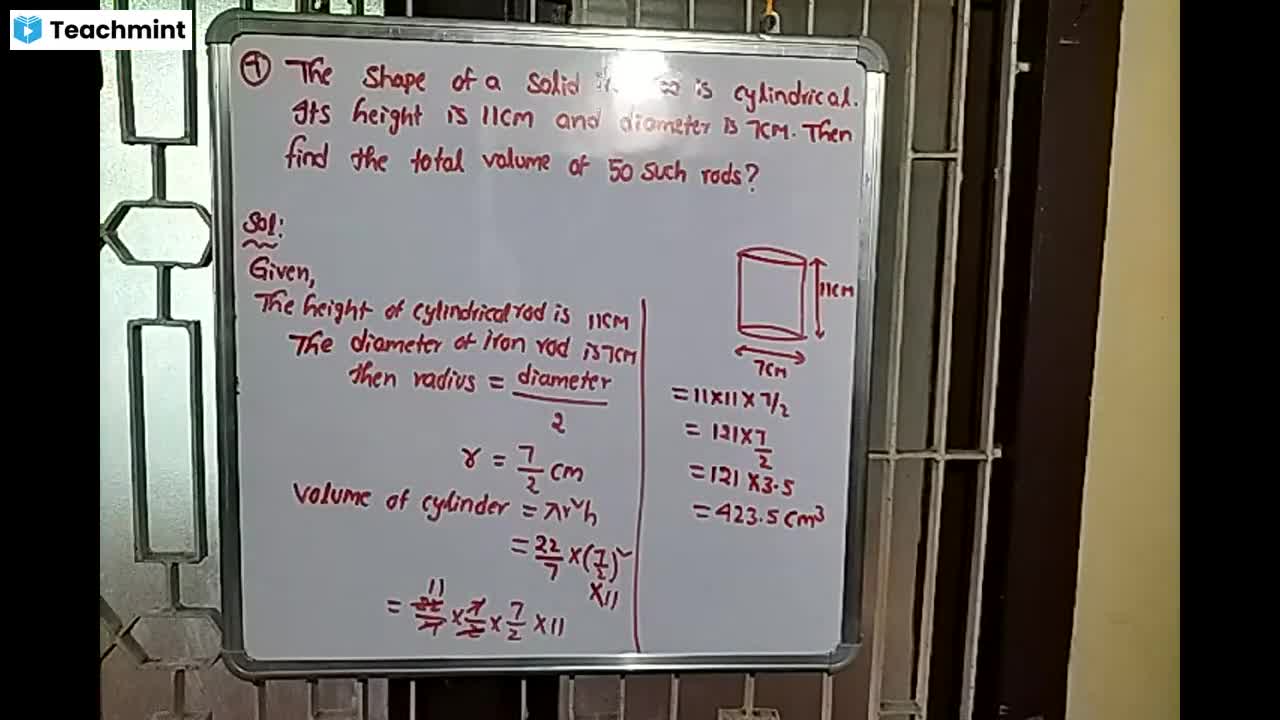 Teachmint
7 The shape of a solid is cylindrical.
Its height is 11cm and diameter is 7cm. Then
find the total volume of 50 such rods?
Sol:
Given,
The height of cylindrical rod is 11cm
The diameter of iron rod is 7cm
then radius = diameter
2
r = 7/2 cm
volume of cylinder = πr²h
= 22/7 × (7/2)²
×11
11
= 22/7 × 7/2 × 7/2 × 11
11cm
7cm
= 11×11×7/2
= 121×7/2
= 121 ×3.5
= 423.5 cm³